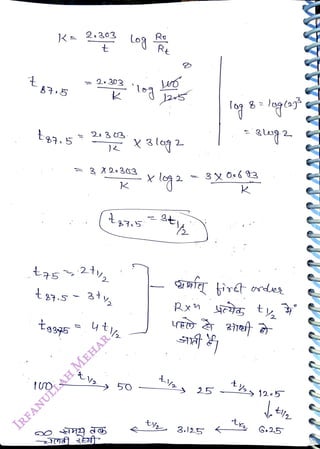 K = 2.303/t log R0/Rt
t87.5 = 2.303/K · log 100/12.5 8
log 8 = log(2)³
= 3log 2
t87.5 = 2.303/K × 3log2
= 3×2.303/K × log2 = 3×0.693/K
t87.5 = 3t1/2
t75 = 2t1/2
t87.5 = 3t1/2
t9375 = 4t1/2
अर्थात् first order
Rxn प्रत्येक t1/2 में
पहले से आधी हो
जाती है।
100 t1/2→ 50 t1/2→ 25 t1/2→ 12.5
↓t1/2
∞ समय तक t1/2← 3.125 t1/2← 6.25
चलती रहेगी
IRFANULLAH MEHAR